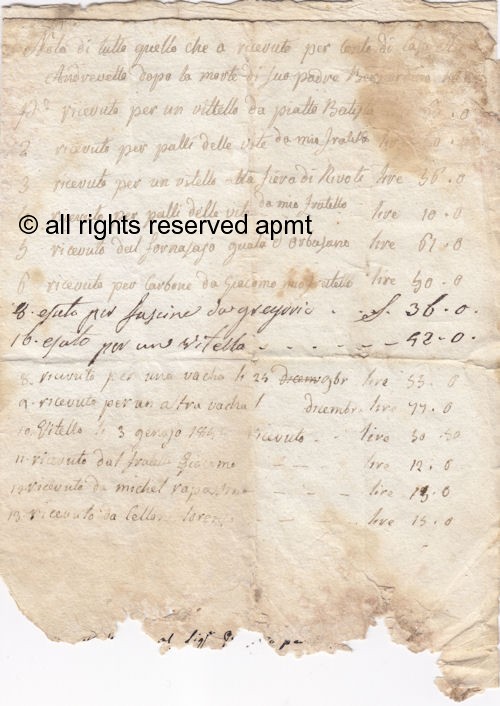 Nota di tutto quello che a ricevuto per conto di
Andrevetto dopo la morte di suo padre Bernardino
ricevuto per un vittello da piatto Batista . 0
2 ricevuto per palli delle vite da mio fratello 0
3 ricevuto per un vitello alla fiera di Rivole lire 36 . 0
ricevuto per palli delle vite da mio fratello lire 10 . 0
© all rights reserved apmt
5 ricevuto dal fornasaso Orbasano lire 61 . 0
6 ricevuto per Carbone da Giacomo mio fratello lire 50 . 0
8. esato per fascine da gregorio . . L. 36 . 0.
10. esato per une vitella - - - - 42 . 0.
8. ricevuto per una vacha li 24 lire 53 . 0
9. ricevuto per un altra vacha dicembre lire 77 . 0
10. Vitello li 3 genajo ricevuto . . lire 30 . 50
11. ricevuto dal fratello Giacomo lire 12 . 0
12 ricevuto da michel lire 13 . 0
13. ricevuto da Cellon lorenzo lire 15 . 0
al Sig.